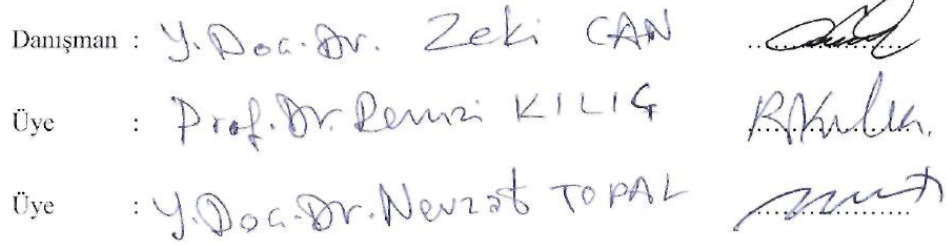 Danışman : Y. Doç. Dr. Zeki CAN
Üye : Prof. Dr. Remzi KILIÇ
Üye : Y. Doç. Dr. Nevzat TOPAL